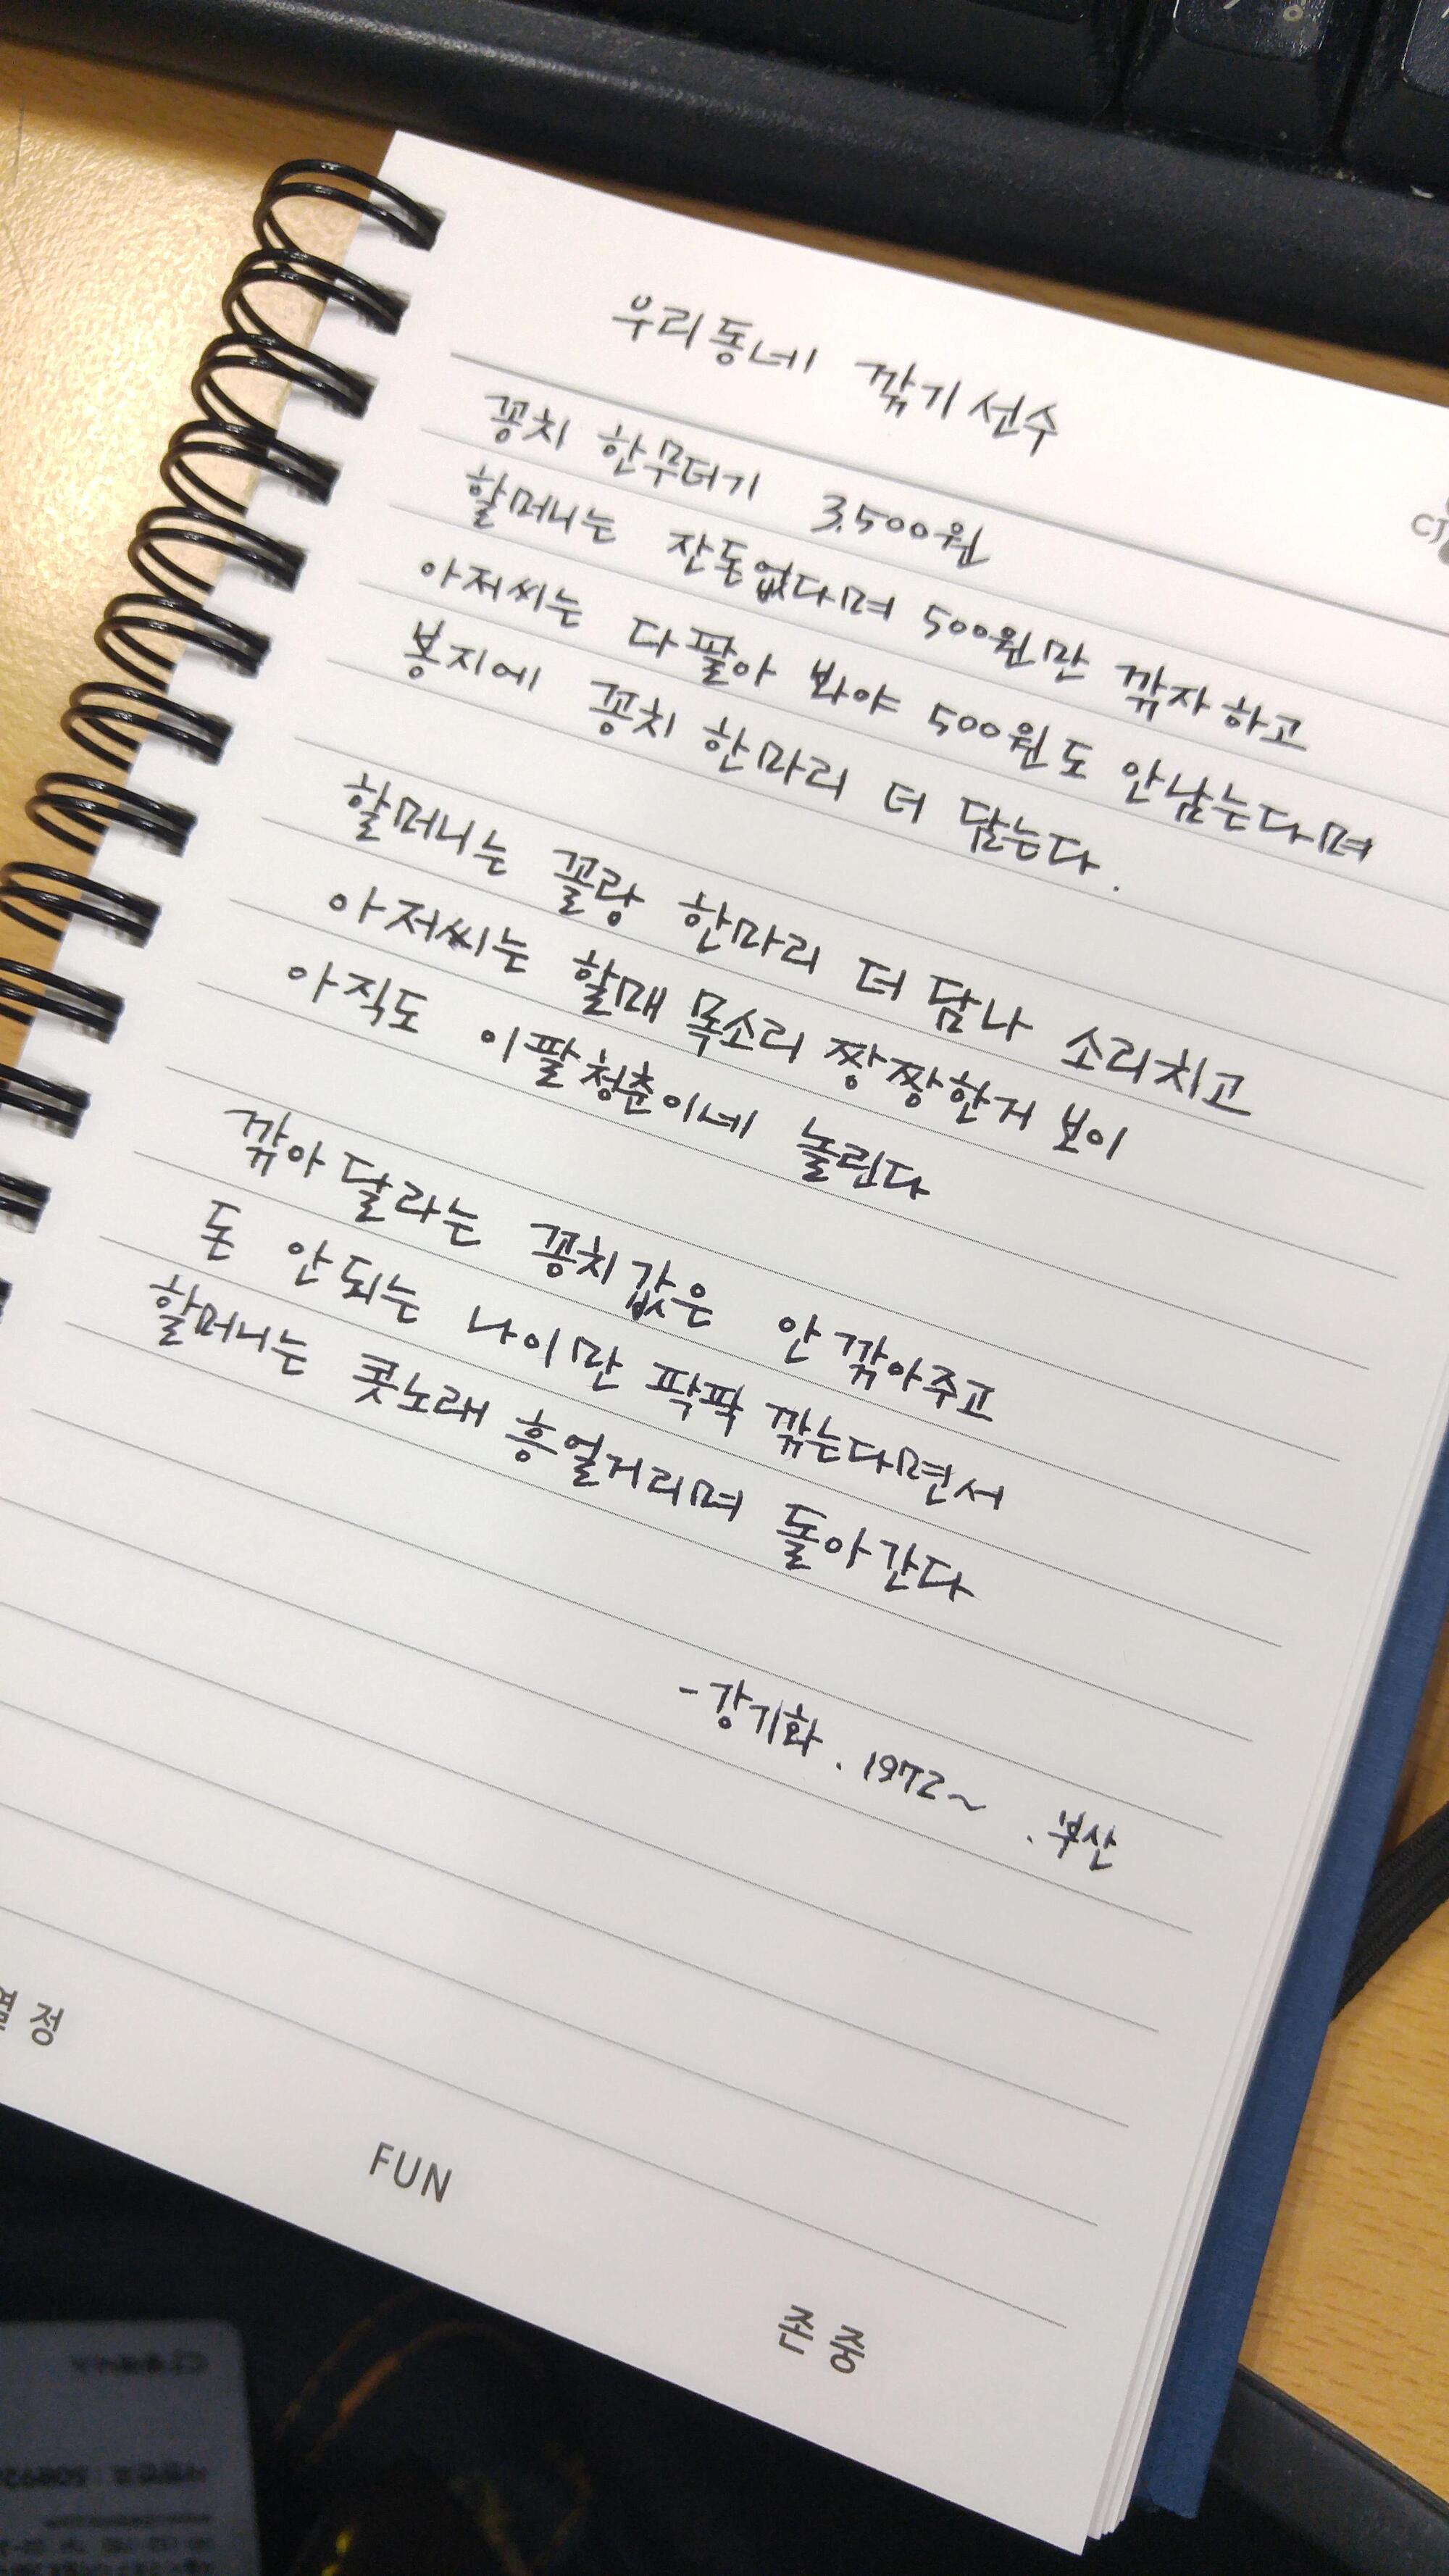 우리동네 깎기선수
CJ
꽁치 한무더기 3,500원
할머니는 잔돈없다며 500원만 깎자하고
아저씨는 다팔아 봐야 500원도 안남는다며
봉지에 꽁치 한마리 더 담는다.
할머니는 꼴랑 한마리 더 담나 소리치고
아저씨는 할매 목소리 짱짱한거 보이
아직도 이팔청춘이네 놀린다
깎아달라는 꽁치값은 안 깎아주고
돈 안되는 나이만 팍팍 깎는다면서
할머니는 콧노래 흥얼거리며 돌아간다
-강기화. 1972~ . 부산
열정
FUN
존중